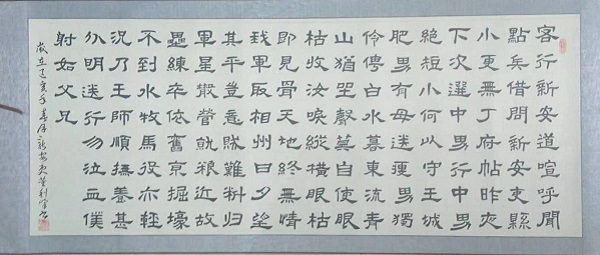 客行新安道喧呼聞
點兵借問新安吏縣
小更無丁府帖昨夜
下次選中男行中男
絕短小何以守王城
肥男有母送瘦男獨
伶俜白水暮東流青
山猶哭聲莫自使眼
枯收汝淚縱橫眼枯
即見骨天地終無情
我軍取相州日夕望
其平豈意賊難料歸
軍星散營就粮近故
壘練卒依舊京掘壕
不到水牧馬役亦輕
況乃王師順撫養甚
分明送行勿泣血僕
射如父兄
歲在